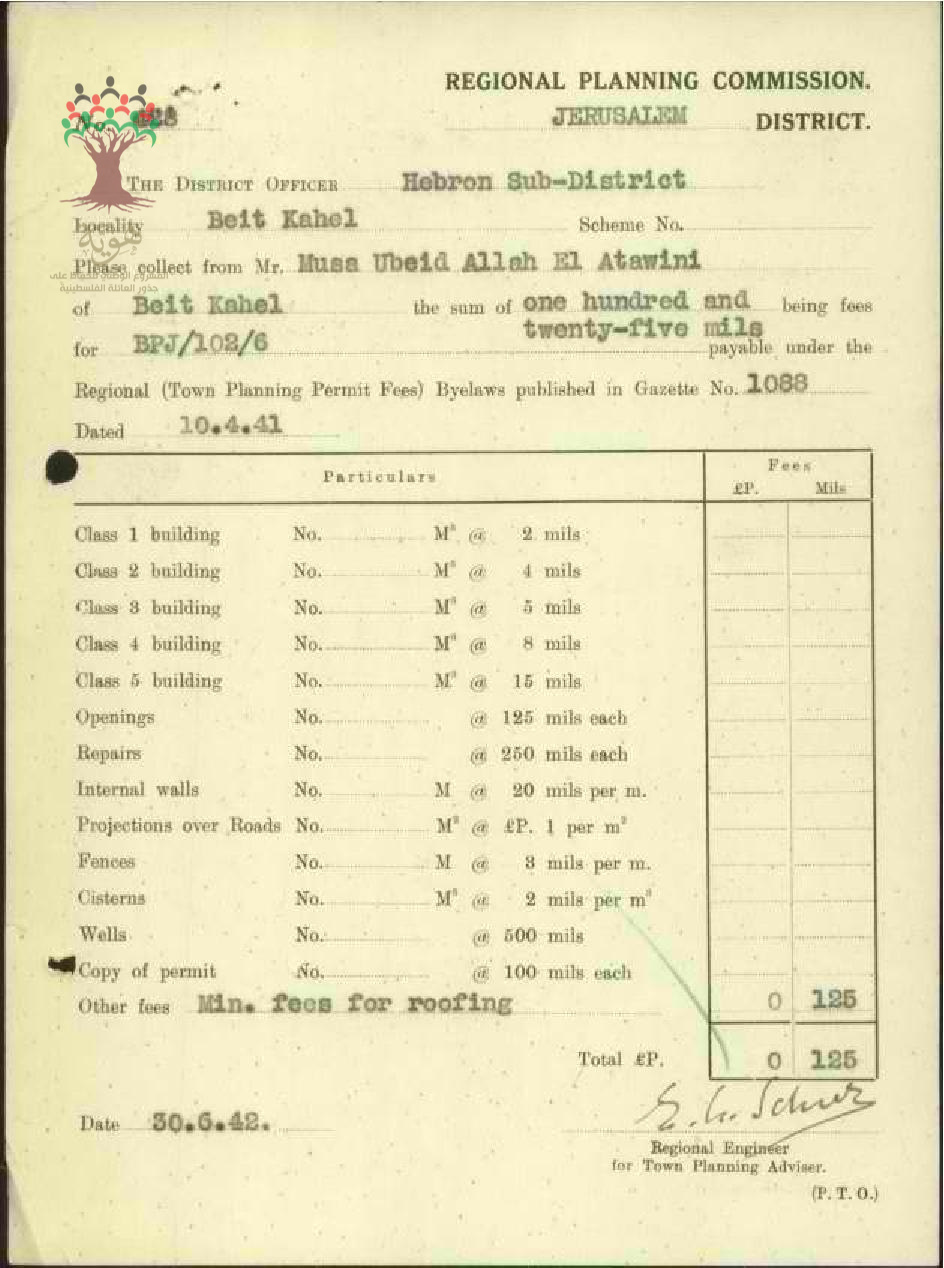 REGIONAL PLANNING COMMISSION.
No.
JERUSALEM DISTRICT.
THE DISTRICT OFFICER Hebron Sub-District
Locality Beit Kahel Scheme No.
هوية
المشروع الوطني للحفاظ على
جذور العائلة الفلسطينية
Please collect from Mr. Musa Ubeid Allah El Atawini
of Beit Kahel the sum of one hundred and being fees
twenty-five mils
for BPJ/102/6 payable under the
Regional (Town Planning Permit Fees) Byelaws published in Gazette No. 1088
Dated 10.4.41
Particulars Fees
£P. Mils
Class 1 building No. M³ @ 2 mils
Class 2 building No. M³ @ 4 mils
Class 3 building No. M³ @ 5 mils
Class 4 building No. M³ @ 8 mils
Class 5 building No. M³ @ 15 mils
Openings No. @ 125 mils each
Repairs No. @ 250 mils each
Internal walls No. M @ 20 mils per m.
Projections over Roads No. M² @ £P. 1 per m²
Fences No. M @ 3 mils per m.
Cisterns No. M³ @ 2 mils per m³
Wells No. @ 500 mils
Copy of permit No. @ 100 mils each
Other fees Min. fees for roofing 0 125
Total £P. 0 125
Date 30.6.42.
Regional Engineer
for Town Planning Adviser.
(P. T. O.)